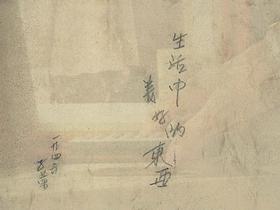 生活中
美好的
東西
一九四六